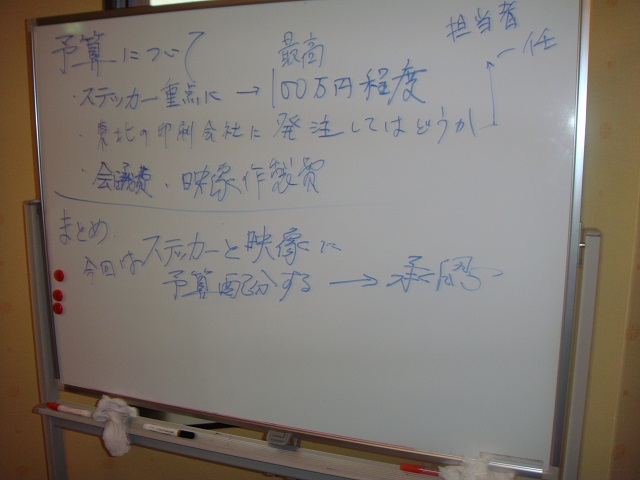 予算について
最高
担当者
一任
・ステッカー重点に → 100万円程度
・東北の印刷会社に発注してはどうか
・会議費・映像作製費
まとめ
今回はステッカーと映像に
予算配分する → 承認